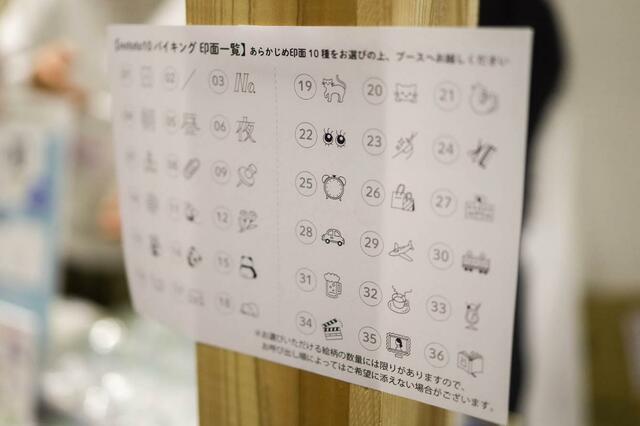 バイキング 印面一覧】あらかじめ印面10種をお選びの上、ブースへお越しください
02 03 No. 19 20 21
昼 06 夜 22 23 24
09 25 26 27
12 28 29 30
15 31 32 33
18 34 35 36
※お選びいただける絵柄の数量には限りがありますので、
お呼び出し順によってはご希望に添えない場合がございます。